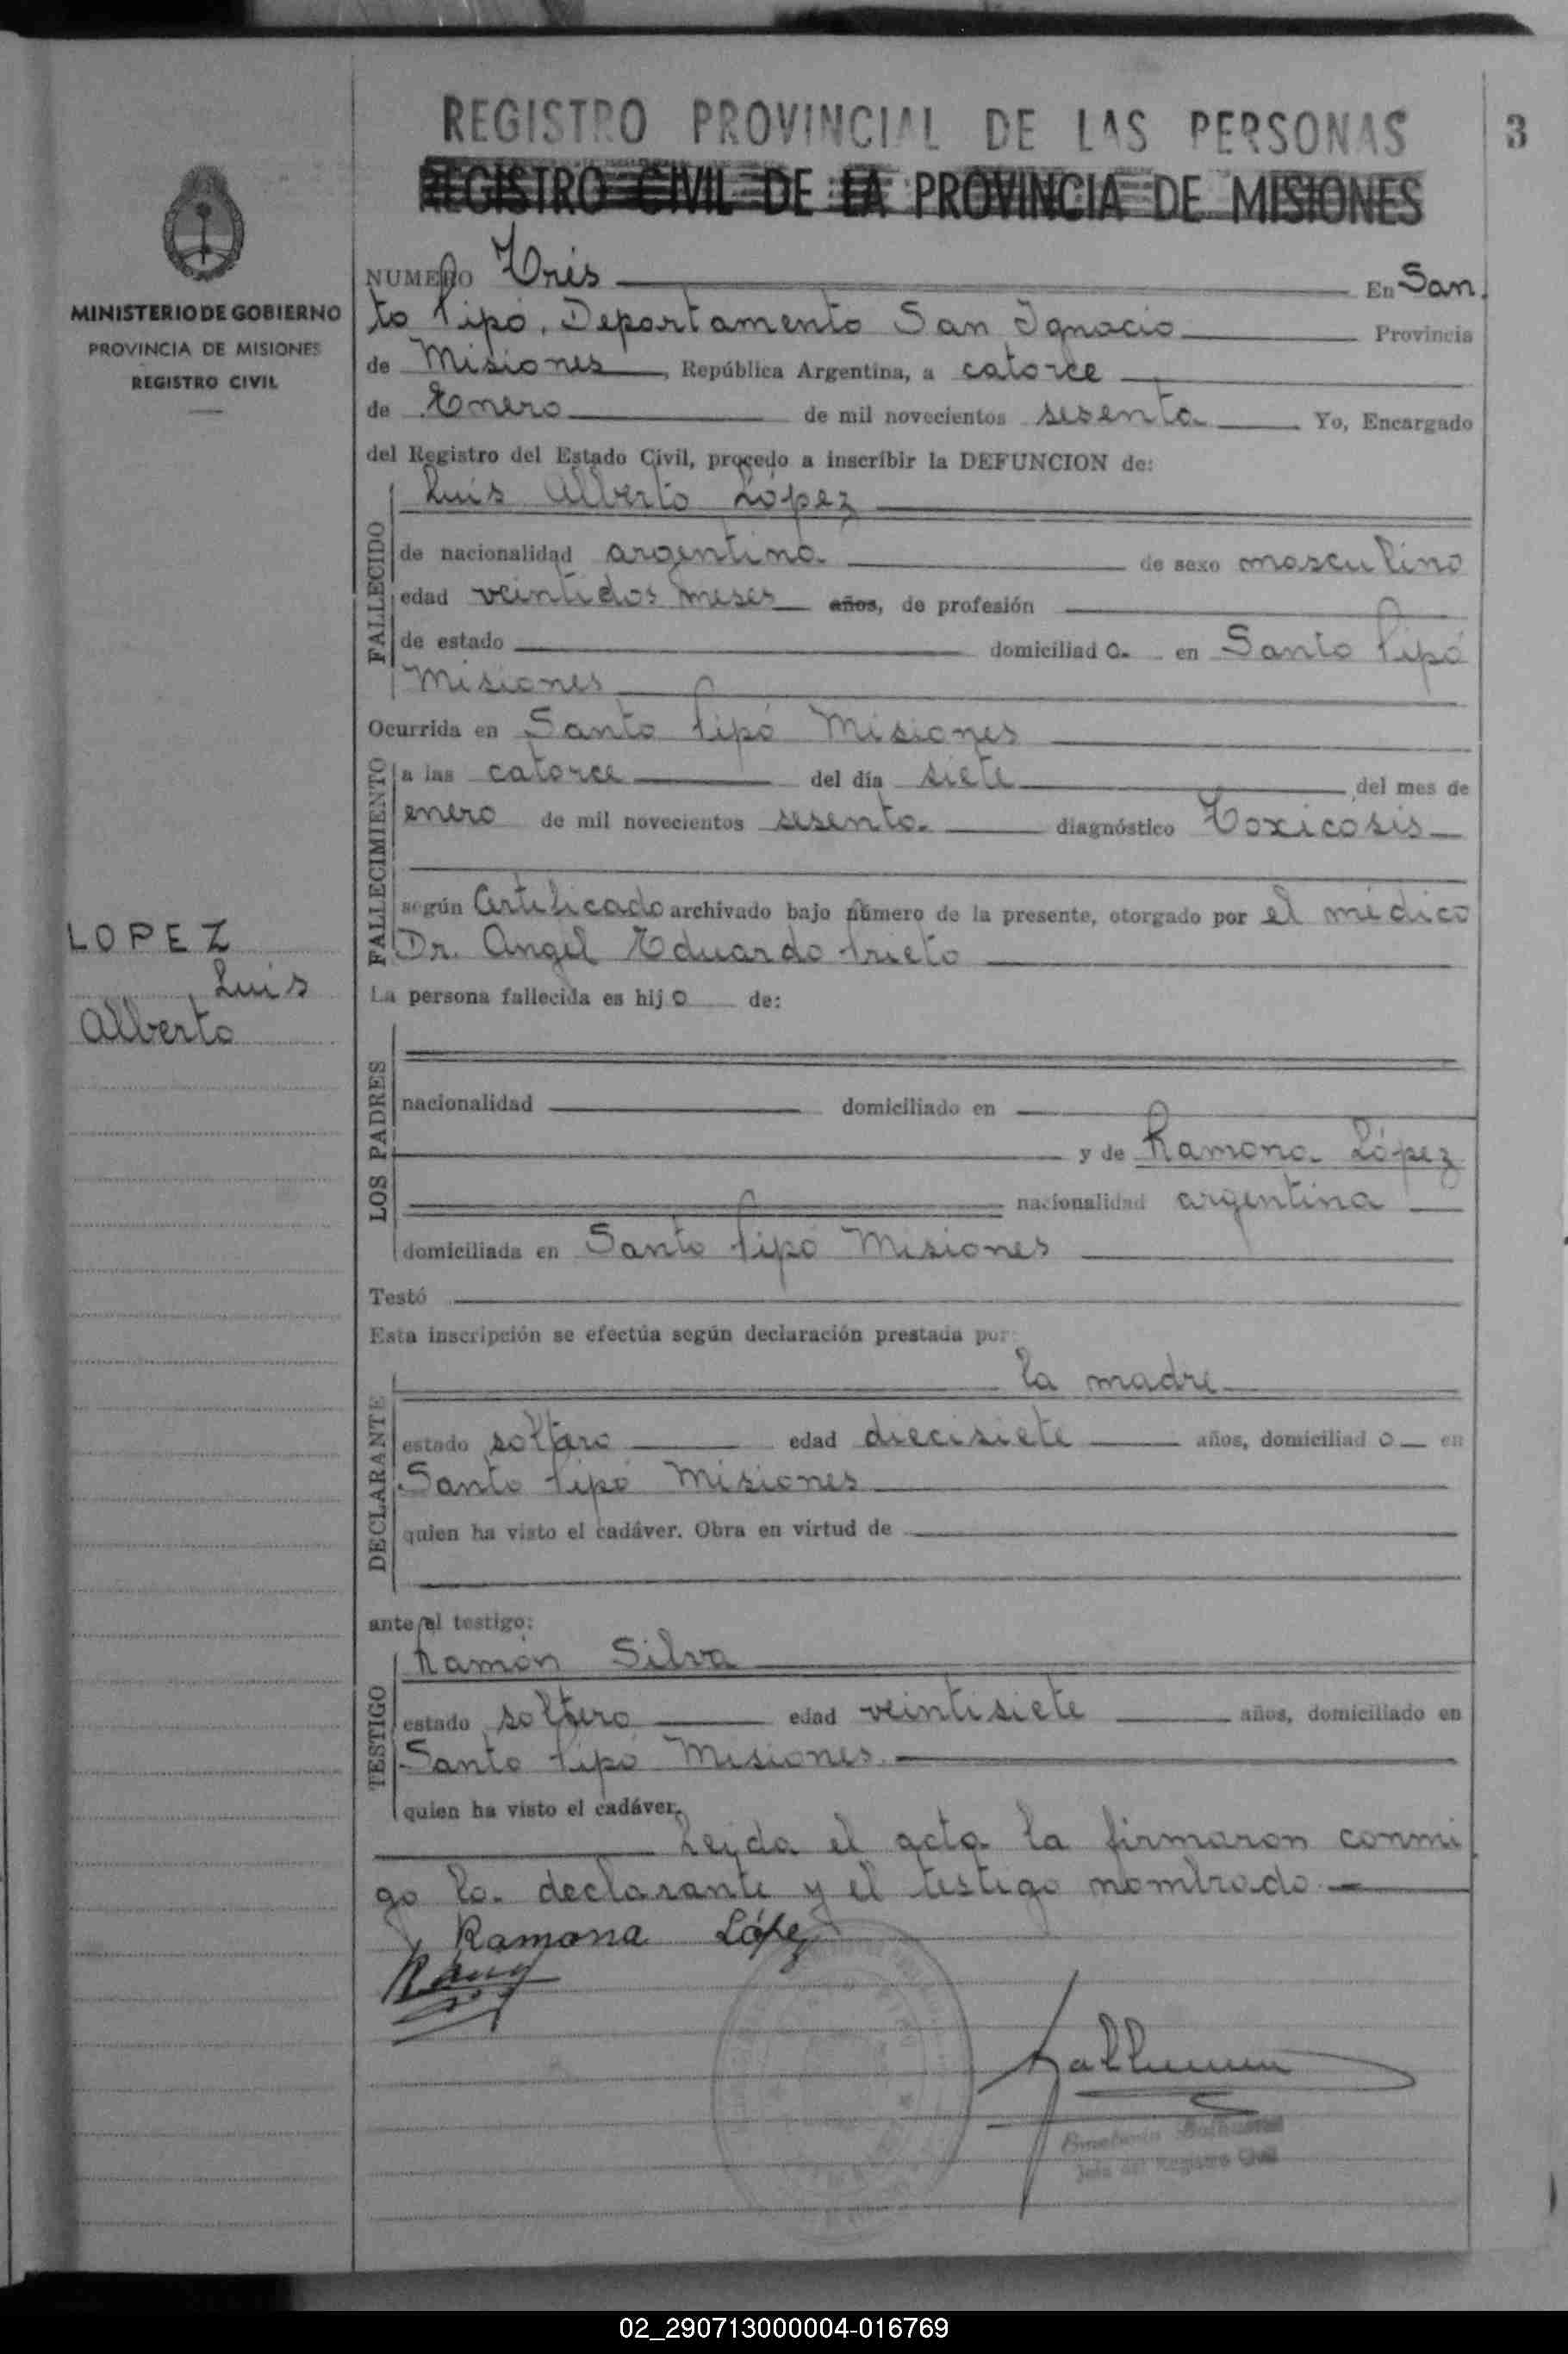 REGISTRO PROVINCIAL DE LAS PERSONAS
3
REGISTRO CIVIL DE LA PROVINCIA DE MISIONES
MINISTERIO DE GOBIERNO
PROVINCIA DE MISIONES
REGISTRO CIVIL
NUMERO Tres En San
to Pipó, Departamento San Ignacio Provincia
de Misiones, República Argentina, a catorce
de Enero de mil novecientos sesenta Yo, Encargado
del Registro del Estado Civil, procedo a inscribir la DEFUNCION de:
FALLECIDO
Luis Alberto López
de nacionalidad argentina de sexo masculino
edad veintidos meses años, de profesión
de estado domiciliado en Santo Pipó
Misiones
Ocurrida en Santo Pipó Misiones
FALLECIMIENTO
a las catorce del día siete del mes de
enero de mil novecientos sesenta diagnóstico Toxicosis
según Certificado archivado bajo número de la presente, otorgado por el médico
Dr. Angel Eduardo Prieto
LOPEZ
Luis
Alberto
La persona fallecida es hijo de:
LOS PADRES
nacionalidad domiciliado en
y de Ramona López
nacionalidad argentina
domiciliada en Santo Pipó Misiones
Testó
Esta inscripción se efectúa según declaración prestada por
DECLARANTE
la madre
estado soltero edad diecisiete años, domiciliado en
Santo Pipó Misiones
quien ha visto el cadáver. Obra en virtud de
ante el testigo:
TESTIGO
Ramón Silva
estado soltero edad veintisiete años, domiciliado en
Santo Pipó Misiones
quien ha visto el cadáver.
Leída el acta la firmaron conmi
go la declarante y el testigo nombrado
Ramona López
Jefe del Registro Civil
02_290713000004-016769